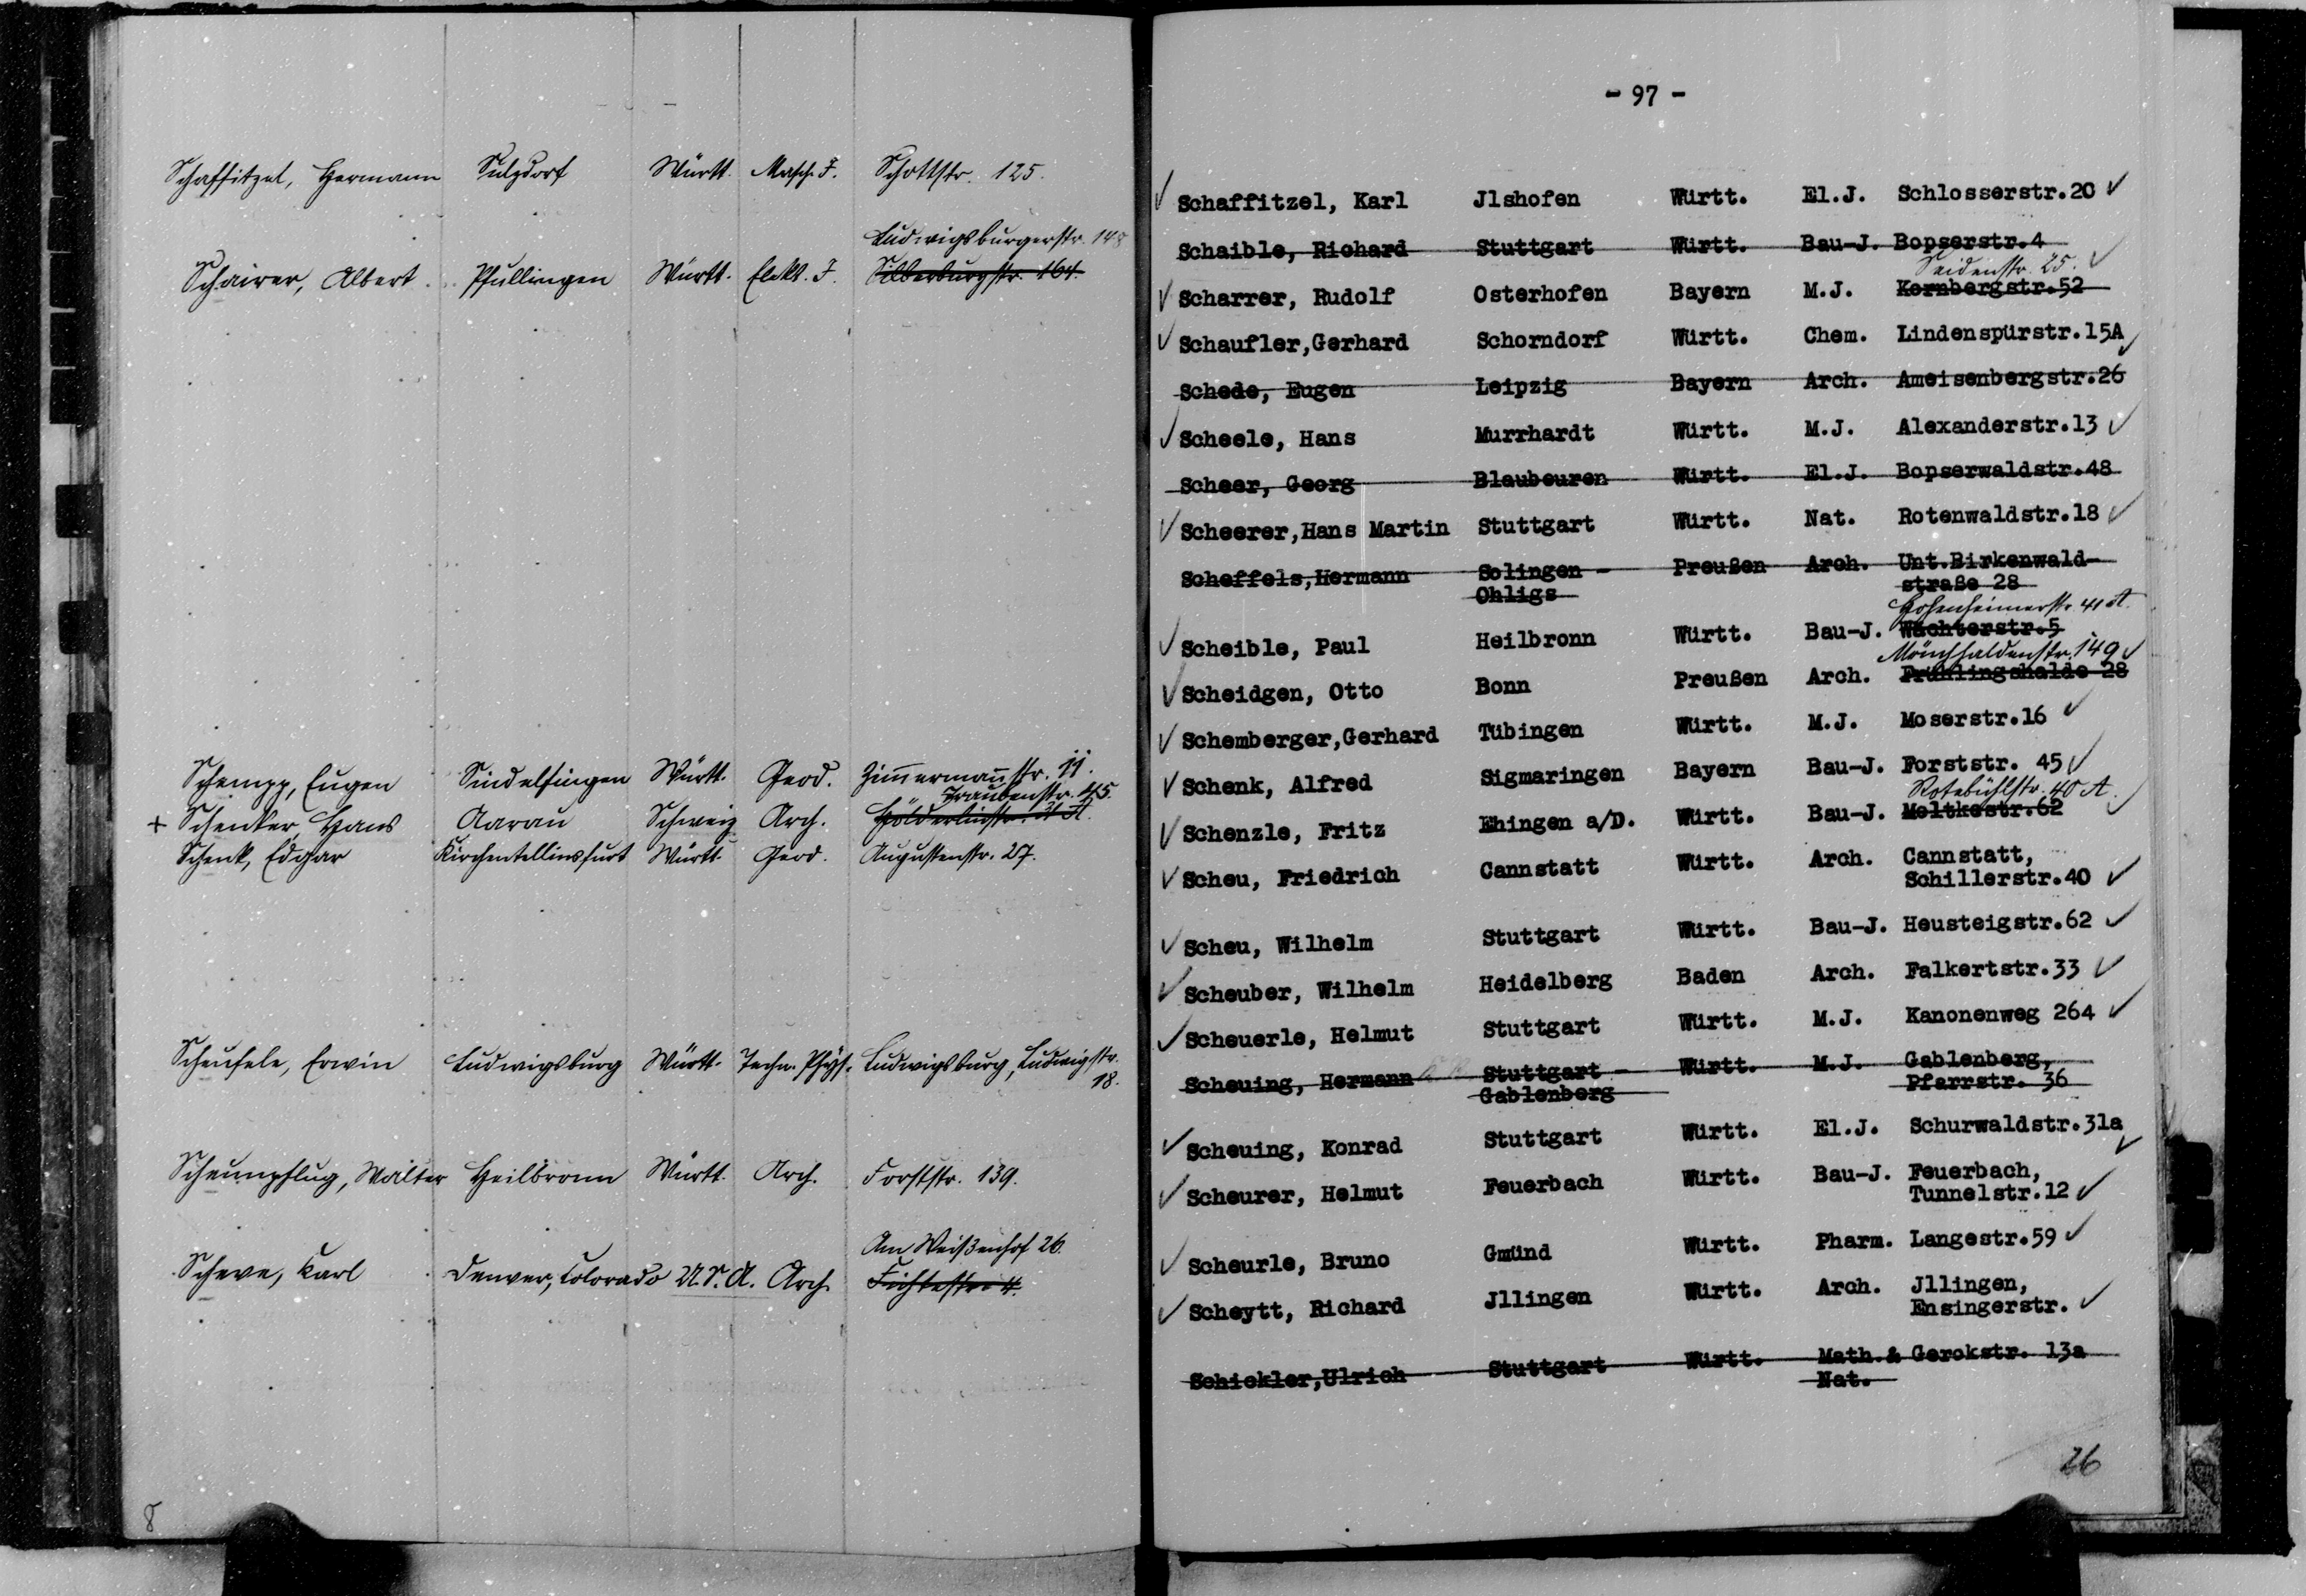 Schaffitzel, Hermann Sulzdorf Württ. Masch. J. Schottstr. 125.
Ludwigsburgerstr. 148
Schairer, Albert Pfullingen Württ. Elekt. J. Silberburgstr. 164.
Schempp, Eugen Sindelfingen Württ. Geod. Zimmermannstr. 11.
Traubenstr. 45.
+ Schenker, Hans Aarau Schweiz Arch. Hölderlinstr. 21 A.
Schenk, Edgar Kirchentellinsfurt Württ. Geod. Augustenstr. 27.
Scheufele, Erwin Ludwigsburg Württ. Techn. Phys. Ludwigsburg, Ludwigstr.
18.
Scheumpflug, Walter Heilbronn Württ. Arch. Forststr. 139.
Am Weißenhof 26.
Scheve, Karl Denver, Colorado U.S.A. Arch. Fichtestr. 4.
8
- 97 -
Schaffitzel, Karl Jlshofen Württ. El.J. Schlosserstr.20
Schaible, Richard Stuttgart Württ. Bau-J. Bopserstr.4
Seidenstr. 25.
Scharrer, Rudolf Osterhofen Bayern M.J. Kornbergstr.52
Schaufler,Gerhard Schorndorf Württ. Chem. Lindenspürstr.15A
Schede, Eugen Leipzig Bayern Arch. Ameisenbergstr.26
Scheele, Hans Murrhardt Württ. M.J. Alexanderstr.13
Scheer, Georg Blaubeuren Württ. El.J. Bopserwaldstr.48
Scheerer,Hans Martin Stuttgart Württ. Nat. Rotenwaldstr.18
Scheffels,Hermann Solingen - Preußen Arch. Unt.Birkenwald-
Ohligs straße 28
Hohenheimerstr. 41 A.
Scheible, Paul Heilbronn Württ. Bau-J. Wächterstr.5
Mönchhaldenstr. 149
Scheidgen, Otto Bonn Preußen Arch. Frühlingshalde 28
Schemberger,Gerhard Tübingen Württ. M.J. Moserstr.16
Schenk, Alfred Sigmaringen Bayern Bau-J. Forststr. 45
Rotebühlstr. 40 A.
Schenzle, Fritz Ehingen a/D. Württ. Bau-J. Moltkestr.62
Scheu, Friedrich Cannstatt Württ. Arch. Cannstatt,
Schillerstr.40
Scheu, Wilhelm Stuttgart Württ. Bau-J. Heusteigstr.62
Scheuber, Wilhelm Heidelberg Baden Arch. Falkertstr.33
Scheuerle, Helmut Stuttgart Württ. M.J. Kanonenweg 264
Scheuing, Hermann Stuttgart - Württ. M.J. Gablenberg,
Gablenberg Pfarrstr. 36
Scheuing, Konrad Stuttgart Württ. El.J. Schurwaldstr.31a
Scheurer, Helmut Feuerbach Württ. Bau-J. Feuerbach,
Tunnelstr.12
Scheurle, Bruno Gmünd Württ. Pharm. Langestr.59
Scheytt, Richard Jllingen Württ. Arch. Jllingen,
Ensingerstr.
Schickler,Ulrich Stuttgart Württ. Math.& Gerokstr. 13a
Nat.
26